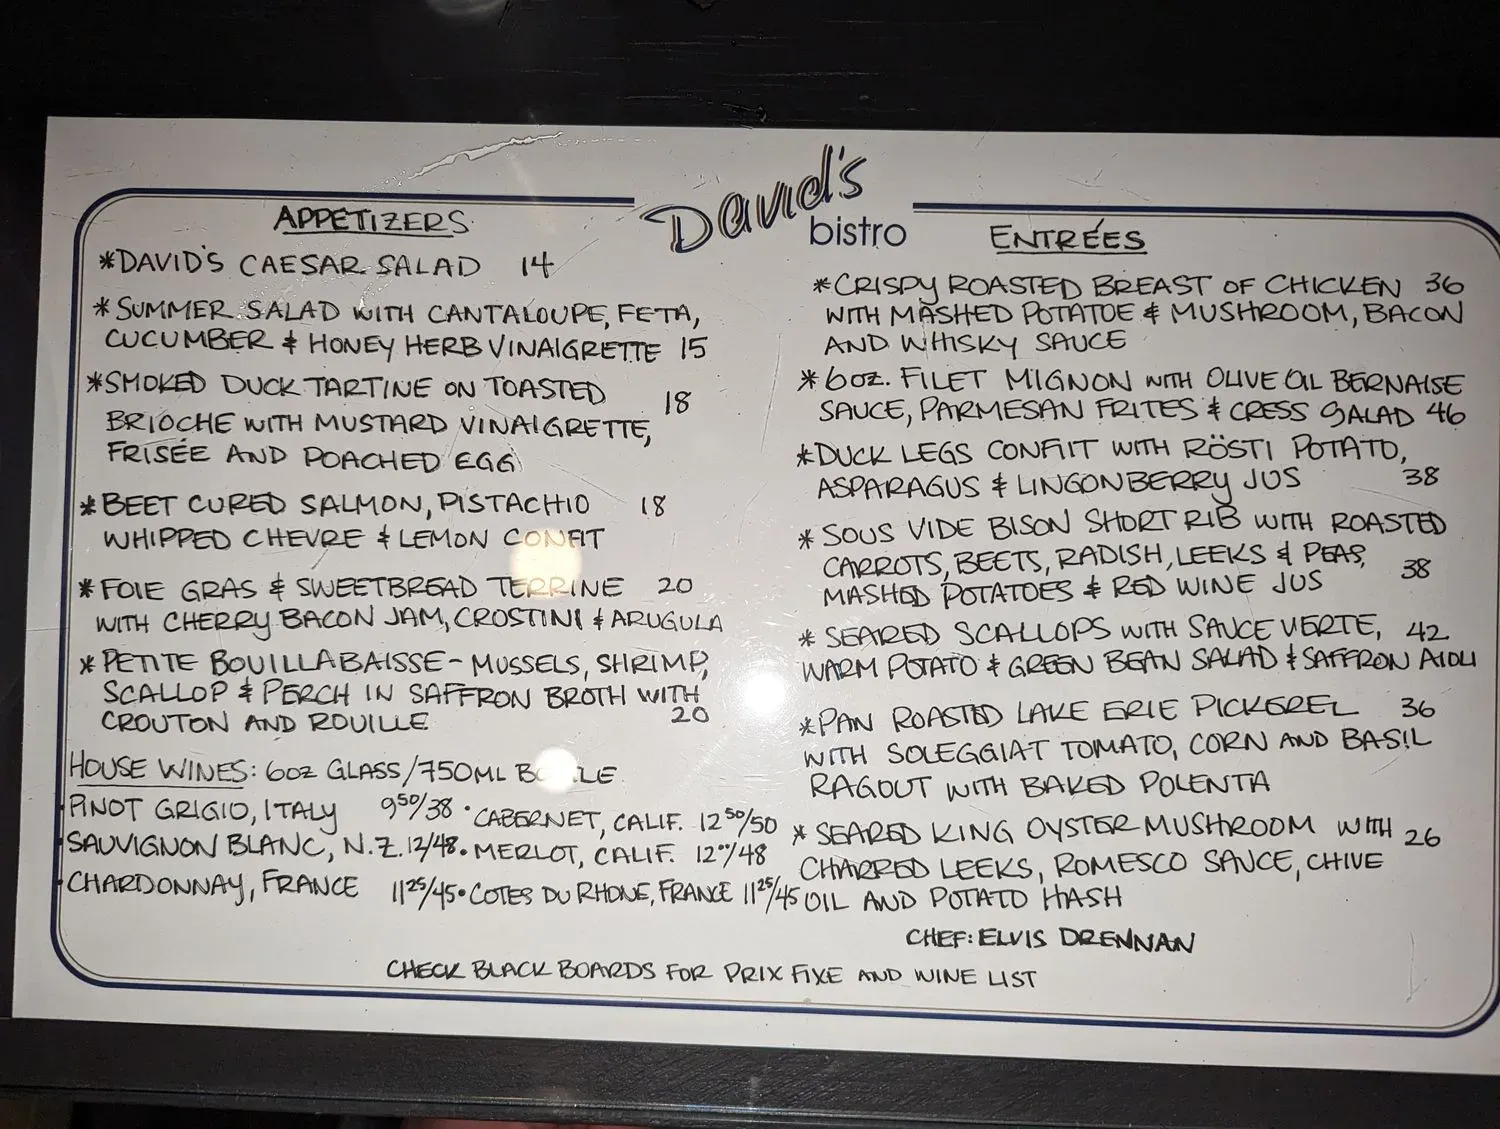 David's
bistro
APPETIZERS
*DAVID'S CAESAR SALAD 14
*SUMMER SALAD WITH CANTALOUPE, FETA,
CUCUMBER & HONEY HERB VINAIGRETTE 15
*SMOKED DUCK TARTINE ON TOASTED 18
BRIOCHE WITH MUSTARD VINAIGRETTE,
FRISÉE AND POACHED EGG
*BEET CURED SALMON, PISTACHIO 18
WHIPPED CHEVRE & LEMON CONFIT
*FOIE GRAS & SWEETBREAD TERRINE 20
WITH CHERRY BACON JAM, CROSTINI & ARUGULA
*PETITE BOUILLABAISSE- MUSSELS, SHRIMP,
SCALLOP & PERCH IN SAFFRON BROTH WITH
CROUTON AND ROUILLE 20
HOUSE WINES: 6oz GLASS/750ML BOTTLE
PINOT GRIGIO, ITALY 9⁵⁰/38 • CABERNET, CALIF. 12⁵⁰/50
SAUVIGNON BLANC, N.Z. 12/48 • MERLOT, CALIF. 12⁰⁰/48
CHARDONNAY, FRANCE 11²⁵/45 • COTES DU RHONE, FRANCE 11²⁵/45
ENTRÉES
*CRISPY ROASTED BREAST OF CHICKEN 36
WITH MASHED POTATOE & MUSHROOM, BACON
AND WHISKY SAUCE
*6oz. FILET MIGNON WITH OLIVE OIL BERNAISE
SAUCE, PARMESAN FRITES & CRESS SALAD 46
*DUCK LEGS CONFIT WITH RÖSTI POTATO,
ASPARAGUS & LINGONBERRY JUS 38
*SOUS VIDE BISON SHORT RIB WITH ROASTED
CARROTS, BEETS, RADISH, LEEKS & PEAS,
MASHED POTATOES & RED WINE JUS 38
*SEARED SCALLOPS WITH SAUCE VERTE, 42
WARM POTATO & GREEN BEAN SALAD & SAFFRON AIOLI
*PAN ROASTED LAKE ERIE PICKEREL 36
WITH SOLEGGIAT TOMATO, CORN AND BASIL
RAGOUT WITH BAKED POLENTA
*SEARED KING OYSTER MUSHROOM WITH 26
CHARRED LEEKS, ROMESCO SAUCE, CHIVE
OIL AND POTATO HASH
CHEF: ELVIS DRENNAN
CHECK BLACK BOARDS FOR PRIX FIXE AND WINE LIST